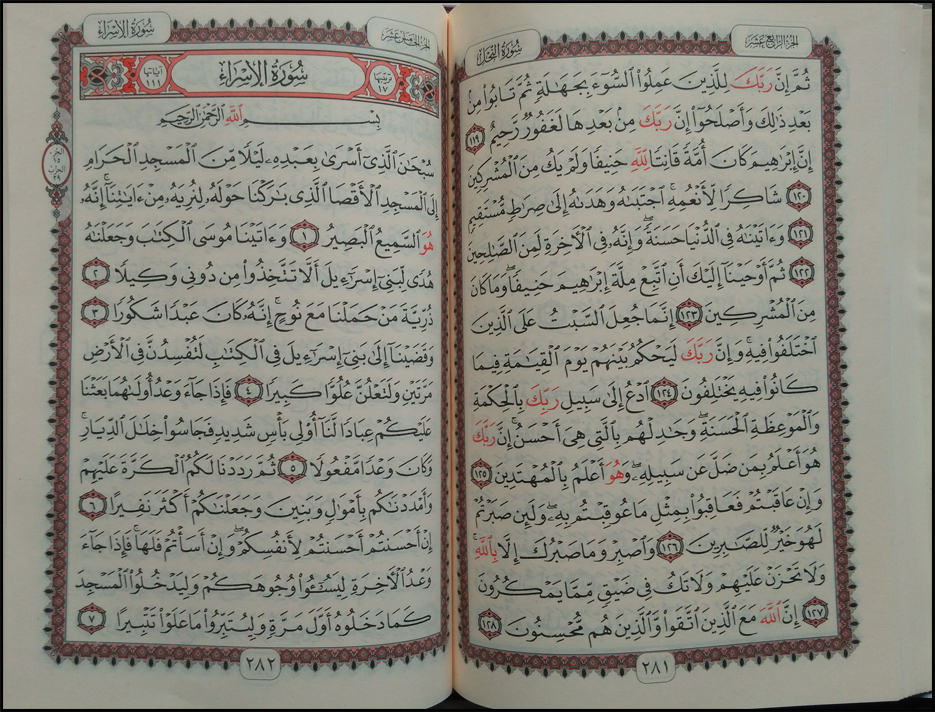 الجزء الرابع عشر
سورة النحل
ثُمَّ إِنَّ رَبَّكَ لِلَّذِينَ عَمِلُوا۟ ٱلسُّوٓءَ بِجَهَٰلَةٍ ثُمَّ تَابُوا۟ مِنۢ
بَعْدِ ذَٰلِكَ وَأَصْلَحُوٓا۟ إِنَّ رَبَّكَ مِنۢ بَعْدِهَا لَغَفُورٌ رَّحِيمٌ ١١٩
إِنَّ إِبْرَٰهِيمَ كَانَ أُمَّةً قَانِتًا لِّلَّهِ حَنِيفًا وَلَمْ يَكُ مِنَ ٱلْمُشْرِكِينَ
١٢٠ شَاكِرًا لِّأَنْعُمِهِ ۚ ٱجْتَبَىٰهُ وَهَدَىٰهُ إِلَىٰ صِرَٰطٍ مُّسْتَقِيمٍ
١٢١ وَءَاتَيْنَٰهُ فِى ٱلدُّنْيَا حَسَنَةً ۖ وَإِنَّهُۥ فِى ٱلْءَاخِرَةِ لَمِنَ ٱلصَّٰلِحِينَ
١٢٢ ثُمَّ أَوْحَيْنَآ إِلَيْكَ أَنِ ٱتَّبِعْ مِلَّةَ إِبْرَٰهِيمَ حَنِيفًا ۖ وَمَا كَانَ
مِنَ ٱلْمُشْرِكِينَ ١٢٣ إِنَّمَا جُعِلَ ٱلسَّبْتُ عَلَى ٱلَّذِينَ
ٱخْتَلَفُوا۟ فِيهِ ۚ وَإِنَّ رَبَّكَ لَيَحْكُمُ بَيْنَهُمْ يَوْمَ ٱلْقِيَٰمَةِ فِيمَا
كَانُوا۟ فِيهِ يَخْتَلِفُونَ ١٢٤ ٱدْعُ إِلَىٰ سَبِيلِ رَبِّكَ بِٱلْحِكْمَةِ
وَٱلْمَوْعِظَةِ ٱلْحَسَنَةِ ۖ وَجَٰدِلْهُم بِٱلَّتِى هِىَ أَحْسَنُ ۚ إِنَّ رَبَّكَ
هُوَ أَعْلَمُ بِمَن ضَلَّ عَن سَبِيلِهِۦ ۖ وَهُوَ أَعْلَمُ بِٱلْمُهْتَدِينَ ١٢٥
وَإِنْ عَاقَبْتُمْ فَعَاقِبُوا۟ بِمِثْلِ مَا عُوقِبْتُم بِهِۦ ۖ وَلَئِن صَبَرْتُمْ
لَهُوَ خَيْرٌ لِّلصَّٰبِرِينَ ١٢٦ وَٱصْبِرْ وَمَا صَبْرُكَ إِلَّا بِٱللَّهِ ۚ
وَلَا تَحْزَنْ عَلَيْهِمْ وَلَا تَكُ فِى ضَيْقٍ مِّمَّا يَمْكُرُونَ
١٢٧ إِنَّ ٱللَّهَ مَعَ ٱلَّذِينَ ٱتَّقَوا۟ وَّٱلَّذِينَ هُم مُّحْسِنُونَ ١٢٨
٢٨١
الجزء الخامس عشر
سورة الإسراء
ترتيبها ١٧ سورة الإسراء آياتها ١١١
بِسْمِ ٱللَّهِ ٱلرَّحْمَٰنِ ٱلرَّحِيمِ
سُبْحَٰنَ ٱلَّذِىٓ أَسْرَىٰ بِعَبْدِهِۦ لَيْلًا مِّنَ ٱلْمَسْجِدِ ٱلْحَرَامِ
إِلَى ٱلْمَسْجِدِ ٱلْأَقْصَا ٱلَّذِى بَٰرَكْنَا حَوْلَهُۥ لِنُرِيَهُۥ مِنْ ءَايَٰتِنَآ ۚ إِنَّهُۥ
هُوَ ٱلسَّمِيعُ ٱلْبَصِيرُ ١ وَءَاتَيْنَا مُوسَى ٱلْكِتَٰبَ وَجَعَلْنَٰهُ
هُدًى لِّبَنِىٓ إِسْرَٰٓءِيلَ أَلَّا تَتَّخِذُوا۟ مِن دُونِى وَكِيلًا ٢
ذُرِّيَّةَ مَنْ حَمَلْنَا مَعَ نُوحٍ ۚ إِنَّهُۥ كَانَ عَبْدًا شَكُورًا ٣
وَقَضَيْنَآ إِلَىٰ بَنِىٓ إِسْرَٰٓءِيلَ فِى ٱلْكِتَٰبِ لَتُفْسِدُنَّ فِى ٱلْأَرْضِ
مَرَّتَيْنِ وَلَتَعْلُنَّ عُلُوًّا كَبِيرًا ٤ فَإِذَا جَآءَ وَعْدُ أُولَىٰهُمَا بَعَثْنَا
عَلَيْكُمْ عِبَادًا لَّنَآ أُو۟لِى بَأْسٍ شَدِيدٍ فَجَاسُوا۟ خِلَٰلَ ٱلدِّيَارِ ۚ
وَكَانَ وَعْدًا مَّفْعُولًا ٥ ثُمَّ رَدَدْنَا لَكُمُ ٱلْكَرَّةَ عَلَيْهِمْ
وَأَمْدَدْنَٰكُم بِأَمْوَٰلٍ وَبَنِينَ وَجَعَلْنَٰكُمْ أَكْثَرَ نَفِيرًا ٦
إِنْ أَحْسَنتُمْ أَحْسَنتُمْ لِأَنفُسِكُمْ ۖ وَإِنْ أَسَأْتُمْ فَلَهَا ۚ فَإِذَا جَآءَ
وَعْدُ ٱلْءَاخِرَةِ لِيَسُۥٓـُٔوا۟ وُجُوهَكُمْ وَلِيَدْخُلُوا۟ ٱلْمَسْجِدَ
كَمَا دَخَلُوهُ أَوَّلَ مَرَّةٍ وَلِيُتَبِّرُوا۟ مَا عَلَوْا۟ تَتْبِيرًا ٧
٢٨٢